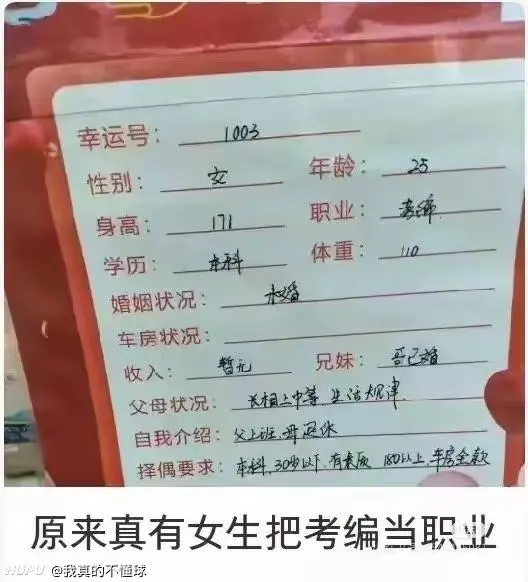 幸运号：1003
性别：女 年龄：25
身高：171 职业：考编
学历：本科 体重：110
婚姻状况：未婚
车房状况：
收入：暂无 兄妹：哥已婚
父母状况：长相上中等 生活规律
自我介绍：父上班，母退休
择偶要求：本科，30岁以下，有素质 180以上，车房全款
原来真有女生把考编当职业
HUPU @我真的不懂球